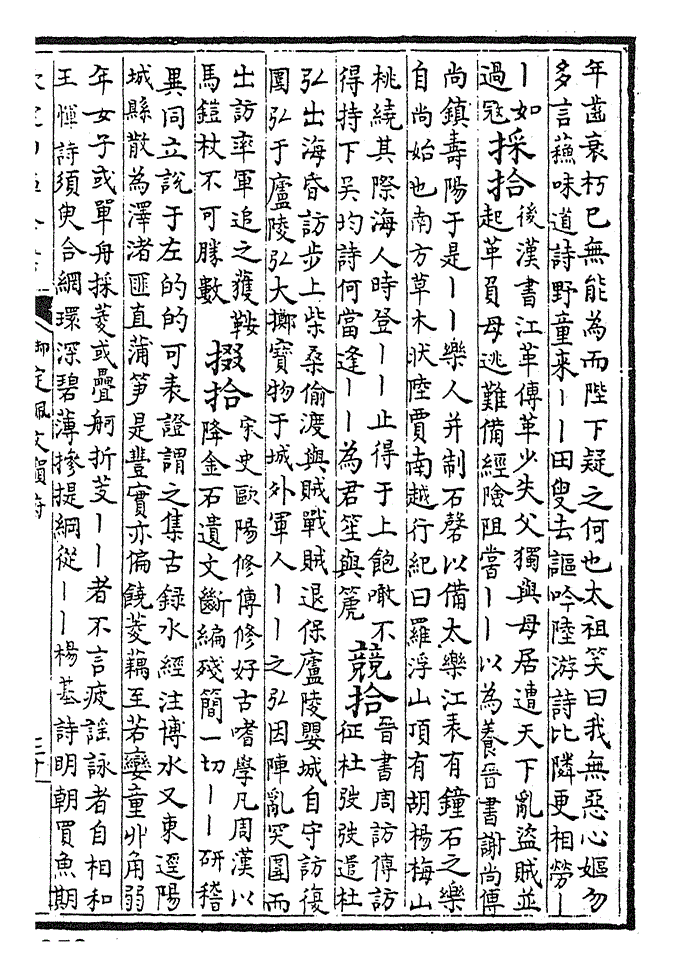 年齒衰朽已無能為而陛下疑之何也太祖笑曰我無惡心嫗勿
多言蘓味道詩野童來丨丨田叟去謳吟陸游詩比隣更相勞丨
丨如過冦
採拾
後漢書江革傳革少失父獨與母居遭天下亂盜賊並
起革負母逃難備經險阻嘗丨丨以為養晉書謝尚傳
尚鎮壽陽于是丨丨樂人并制石磬以備太樂江表有鐘石之樂
自尚始也南方草木狀陸賈南越行紀曰羅浮山頂有胡楊梅山
桃繞其際海人時登丨丨止得于上飽噉不
得持下吳均詩何當逢丨丨為君笙與篪
競拾
晉書周訪傳訪
征杜弢弢遣杜
弘出海昏訪步上柴桑偷渡與賊戰賊退保廬陵嬰城自守訪復
圍弘于廬陵弘大擲寶物于城外軍人丨丨之弘因陣亂突圍而
出訪率軍追之獲鞍
馬鎧杖不可勝數
掇拾
宋史歐陽修傳修好古嗜學凡周漢以
降金石遺文斷編殘簡一切丨丨研稽
異同立說于左的的可表證謂之集古録水經注博水又東逕陽
城縣散為澤渚匪直蒲笋是豐實亦偏饒菱藕至若孌童丱角弱
年女子或單舟採菱或疊舸折芰丨丨者不言疲謡詠者自相和
王惲詩須臾合網環深碧薄摻提綱從丨丨楊基詩明朝買魚期
御定佩文韻府